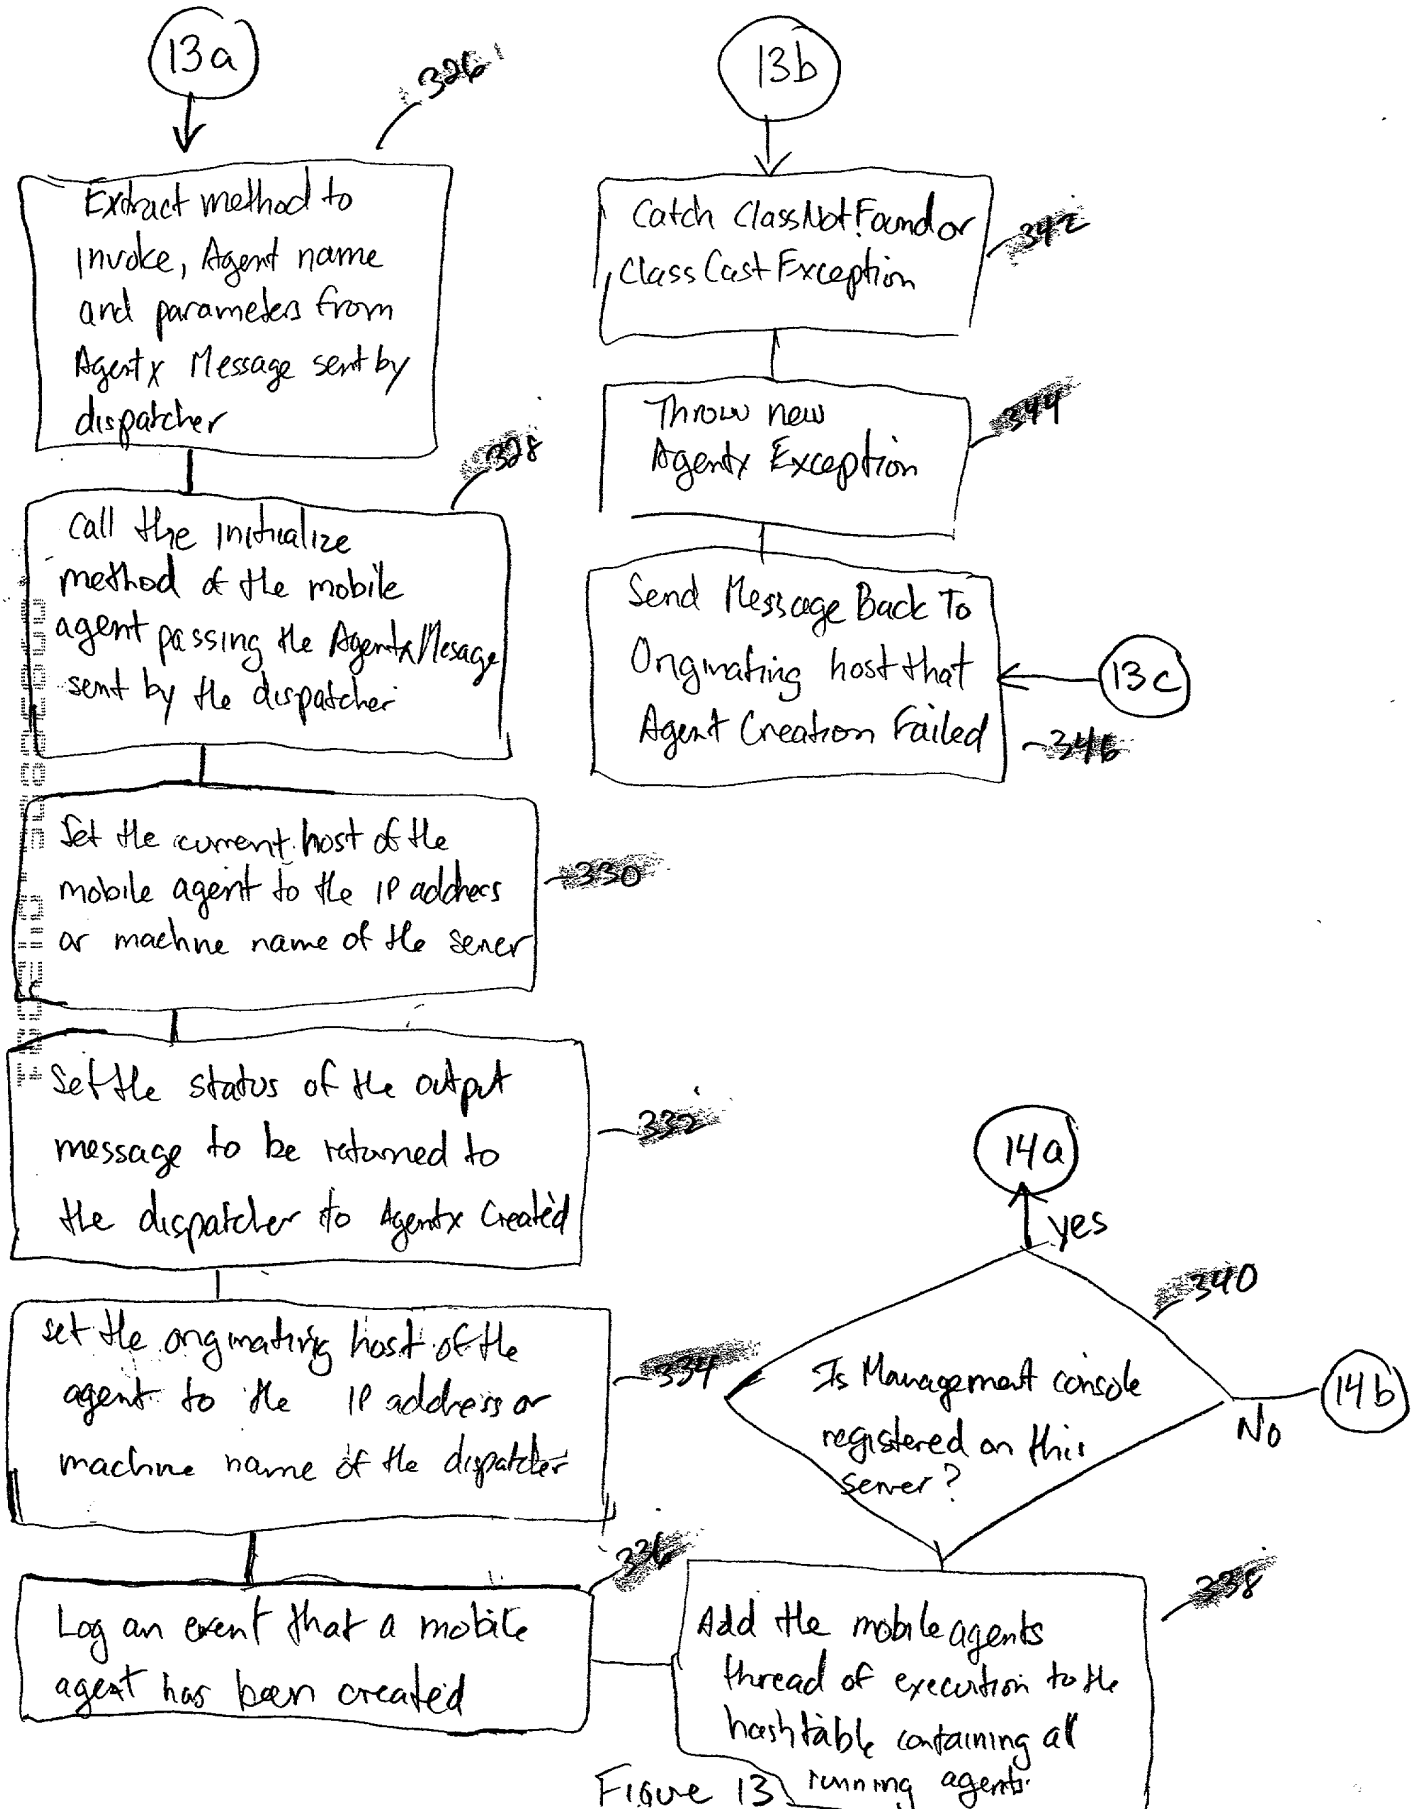 13a
326
Extract method to
invoke, Agent name
and parameters from
Agentx Message sent by
dispatcher
328
Call the initialize
method of the mobile
agent passing the AgentxMesage
sent by the dispatcher
Set the current host of the
mobile agent to the IP address
or machine name of the server
330
Set the status of the output
message to be returned to
the dispatcher to Agentx Created
332
set the originating host of the
agent to the IP address or
machine name of the dispatcher
334
336
Log an event that a mobile
agent has been created
13b
Catch ClassNotFound or
Class Cast Exception
342
Throw new
Agentx Exception
344
Send Message Back To
Originating host that
Agent Creation Failed
13c
346
14a
yes
340
Is Management console
registered on this
server?
14b
No
338
Add the mobile agents
thread of execution to the
hashtable containing all
running agents.
Figure 13